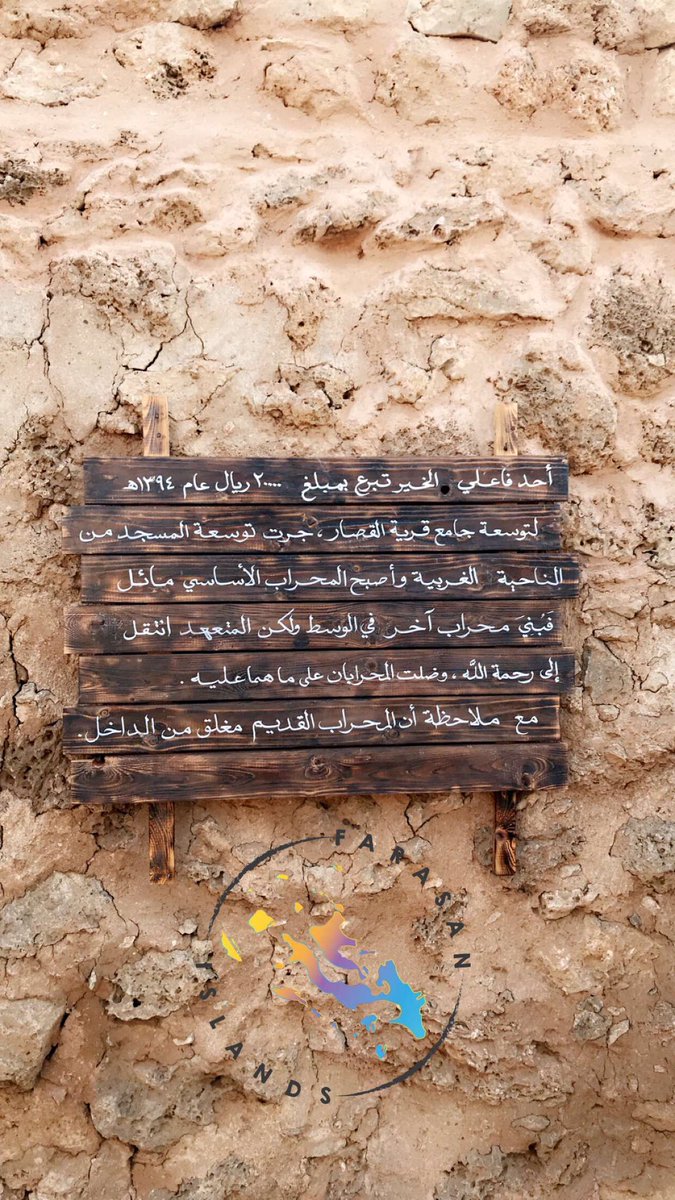 أحد فاعلي الخير تبرع بمبلغ ٢٠٠٠٠ ريال عام ١٣٩٤هـ
لتوسعة جامع قرية القصار ، جرت توسعة المسجد من
الناحية الغربية وأصبح المحراب الأساسي مائل
فَبُني محراب آخر في الوسط ولكن المتعهد انتقل
إلى رحمة الله ، وضلت المحرابان على ما هما عليه .
مع ملاحظة أن المحراب القديم مغلق من الداخل .
FARASAN
ISLANDS